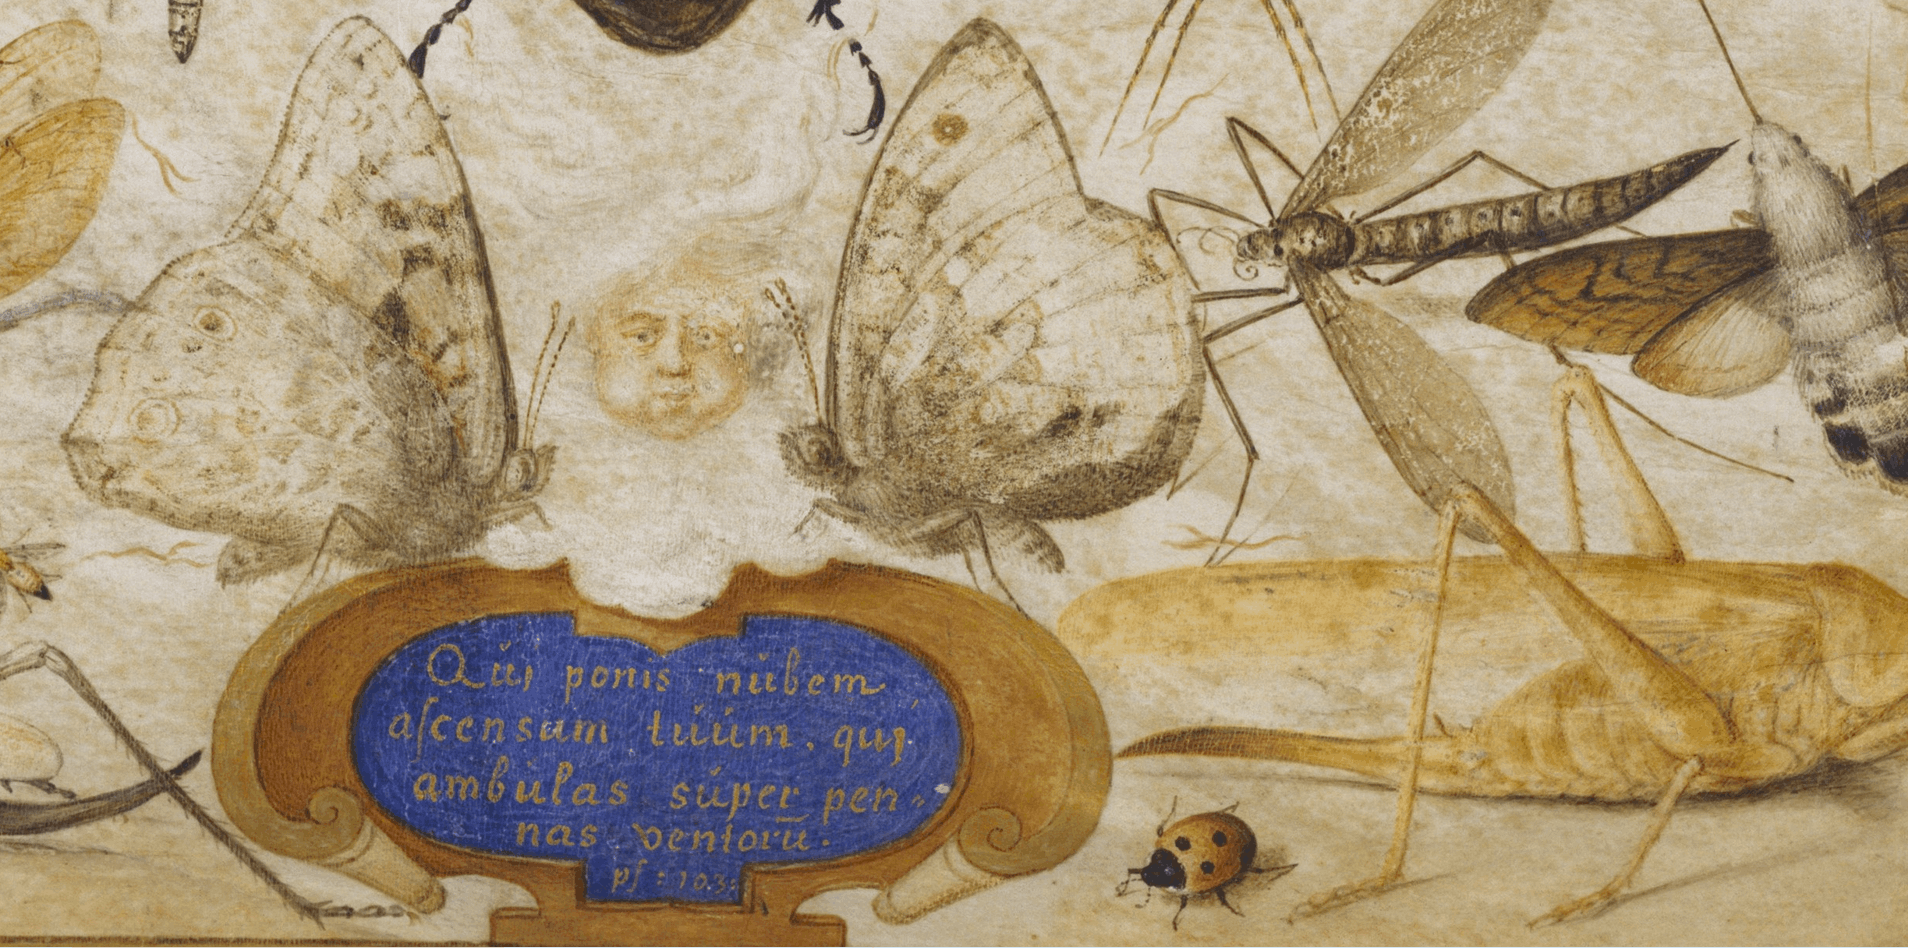 Qui ponis nubem
aſcensum tuum. qui
ambulas super pen-
nas ventorū.
pſ: 103: